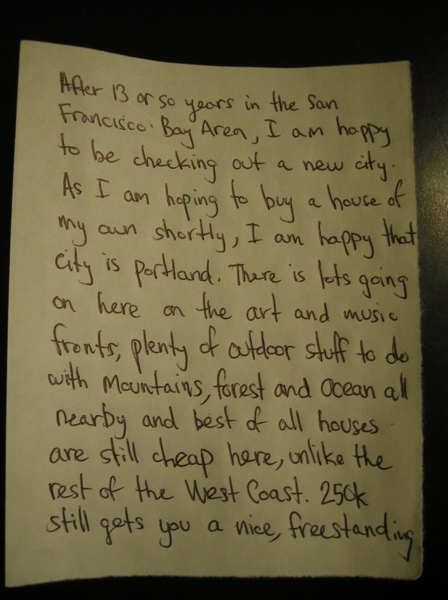 After 13 or so years in the San
Francisco Bay Area, I am happy
to be checking out a new city.
As I am hoping to buy a house of
my own shortly, I am happy that
city is portland. There is lots going
on here on the art and music
fronts, plenty of outdoor stuff to do
with Mountains, forest and Ocean all
nearby and best of all houses
are still cheap here, unlike the
rest of the West Coast. 250k
still gets you a nice, freestanding